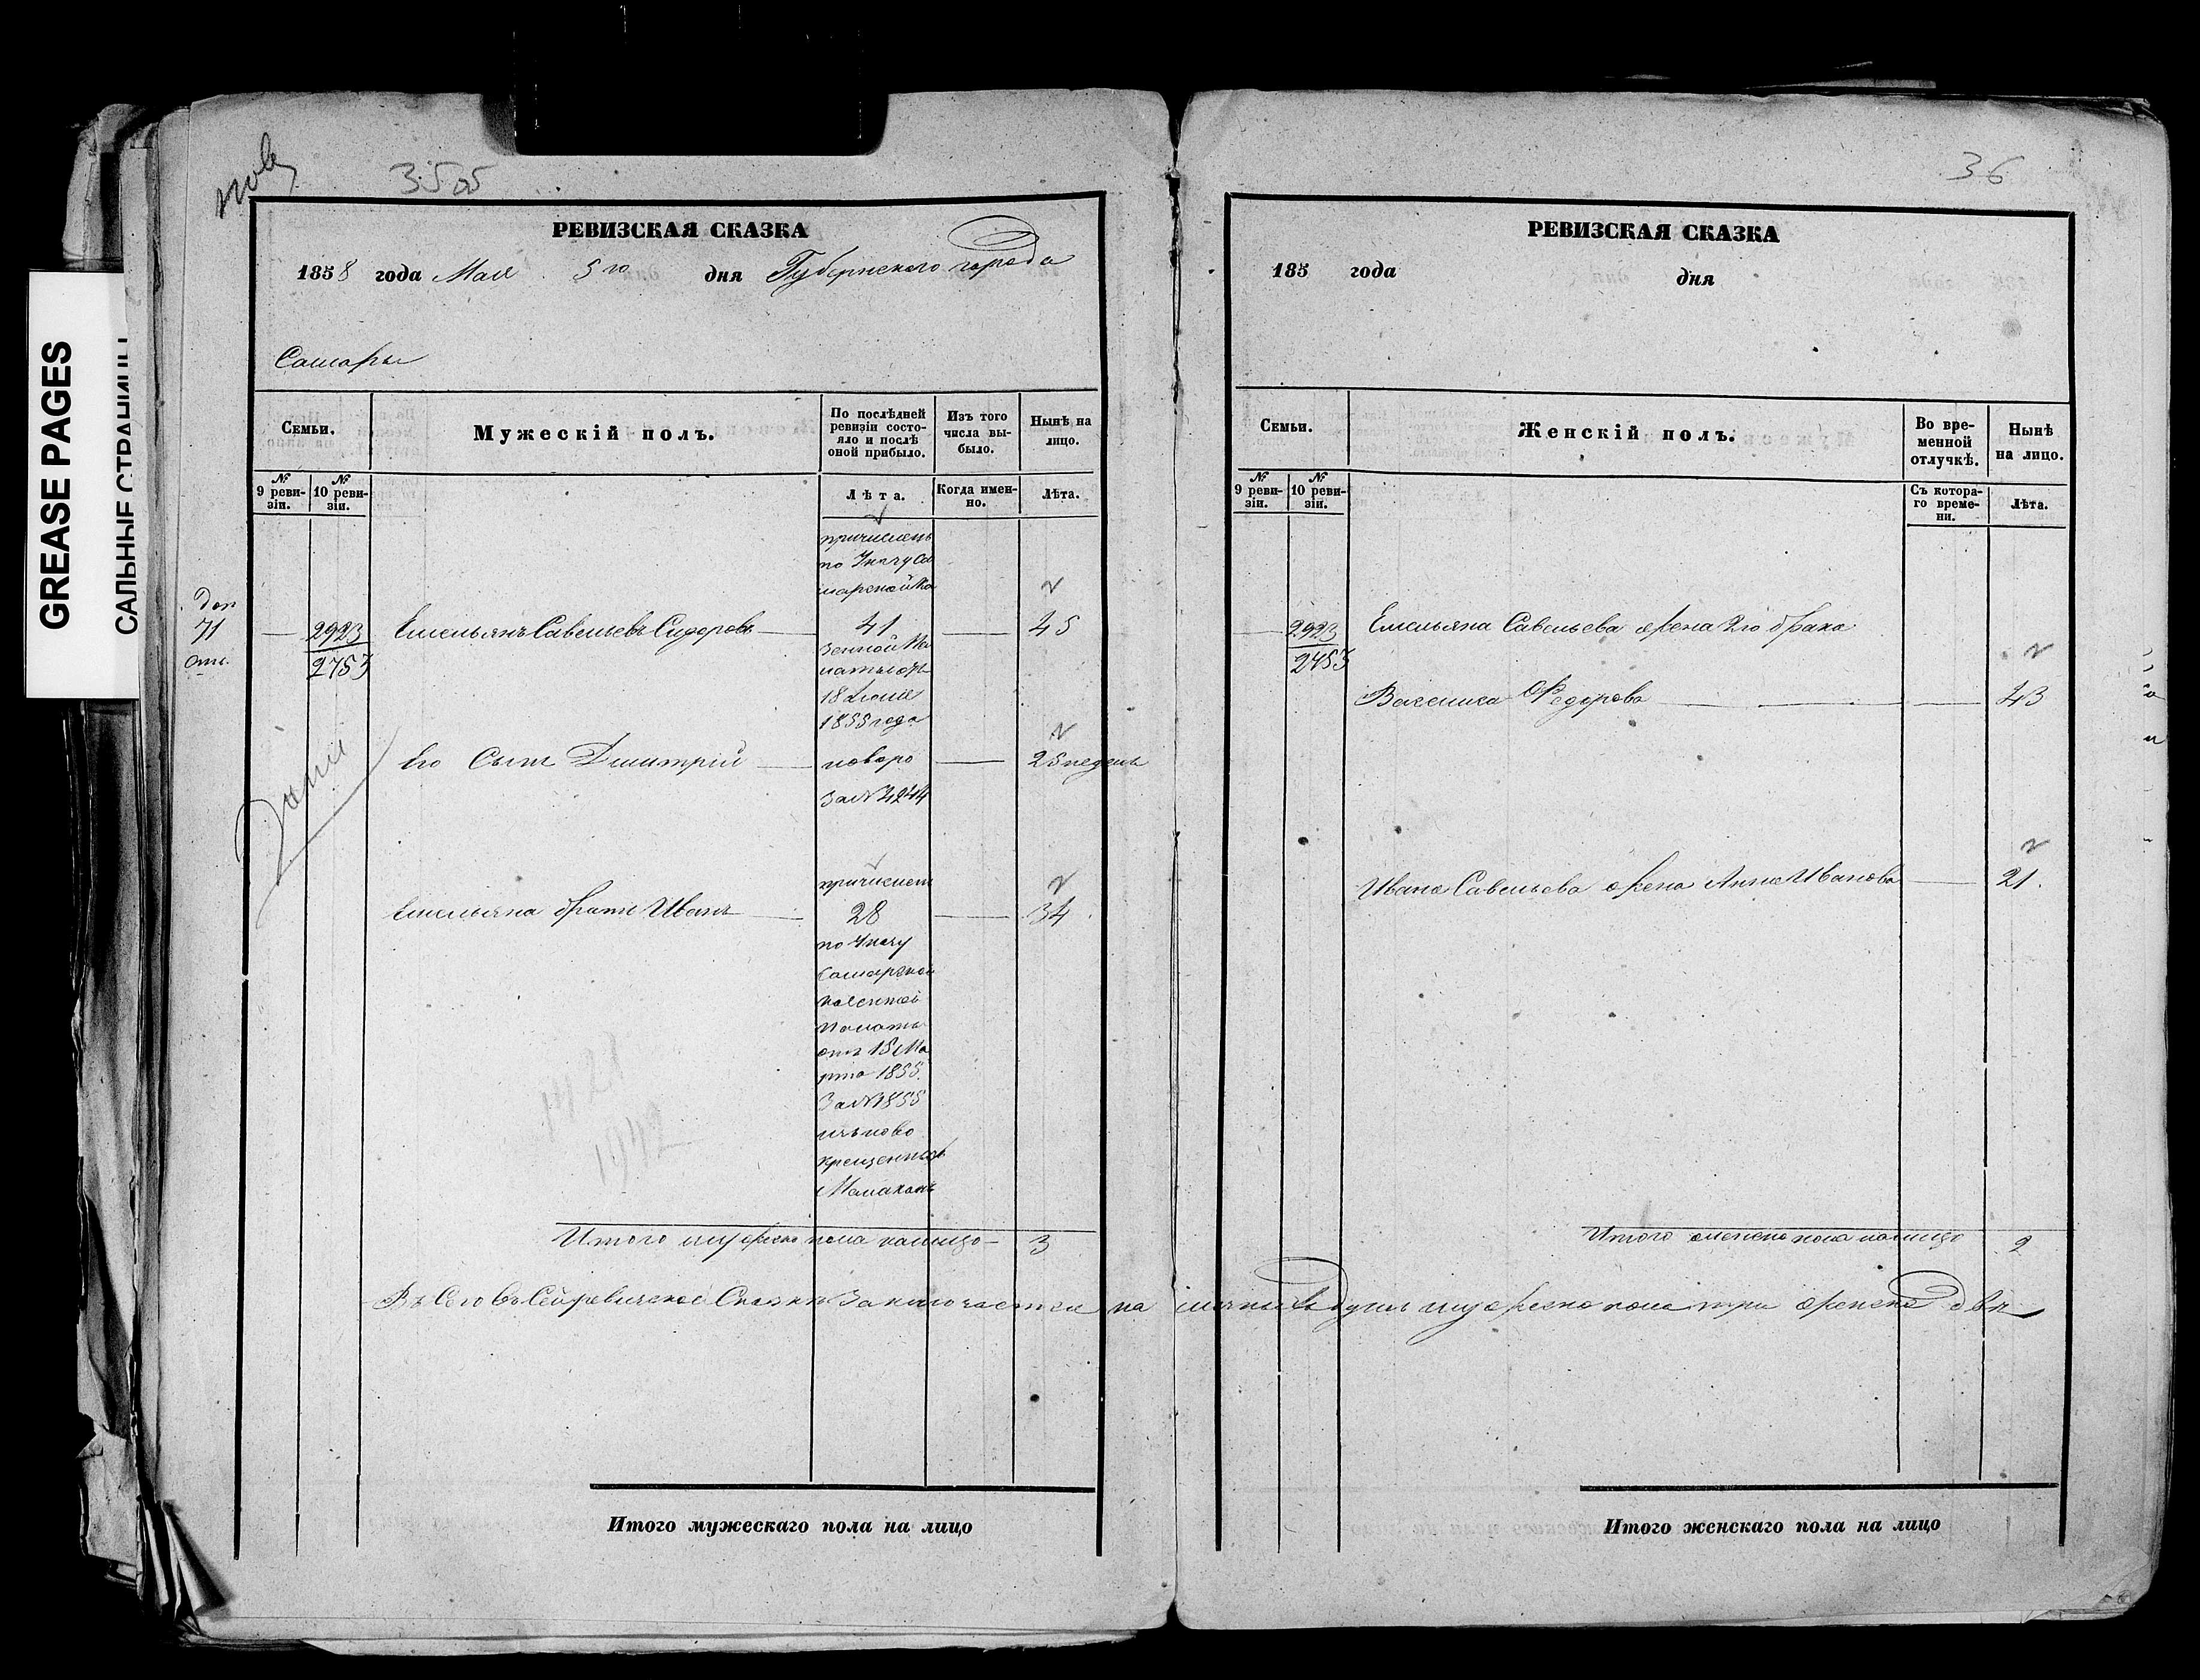 GREASE PAGES
САЛЬНЫЕ СТРАНИЦЫ
35об
РЕВИЗСКАЯ СКАЗКА
1858 года Мая 5го дня Губернскаго города
Самары
Семьи.
Мужескій полъ.
По послѣдней ревизіи состояло и послѣ оной прибыло.
Изъ того числа выбыло.
Нынѣ на лицо.
№ 9 ревизіи.
№ 10 ревизіи.
Лѣта.
Когда именно.
Лѣта.
причисленъ
по Указу Са
марской Ка
Доп
71
2923
Емельянъ Савельевъ Сидоровъ
41
45
2753
зенной Па
латы отъ
18 Іюля
1855 года
Его Сынъ Дмитрій
новоро
25 недель
За № 4244
причисленъ
Емельяна братъ Иванъ
28
34
по Указу
Самарской
казенной
Палаты
отъ 15 Ма
рта 1855
За № 1855
изъ ново
крещенныхъ
Итого мужеска пола налицо
3
Всего въ Сей ревизской Сказкѣ Заключается на
Итого мужескаго пола на лицо
36
РЕВИЗСКАЯ СКАЗКА
185 года дня
Семьи.
Женскій полъ.
Во временной отлучкѣ.
Нынѣ на лицо.
№ 9 ревизіи.
№ 10 ревизіи.
Съ котораго времени.
Лѣта.
2923
Емельяна Савельева жена 2го брака
2753
Василиса Федорова
43
Ивана Савельева жена Анна Иванова
21.
Итого женска пола налицо
2
душъ мужеска пола три женска двѣ
Итого женскаго пола на лицо